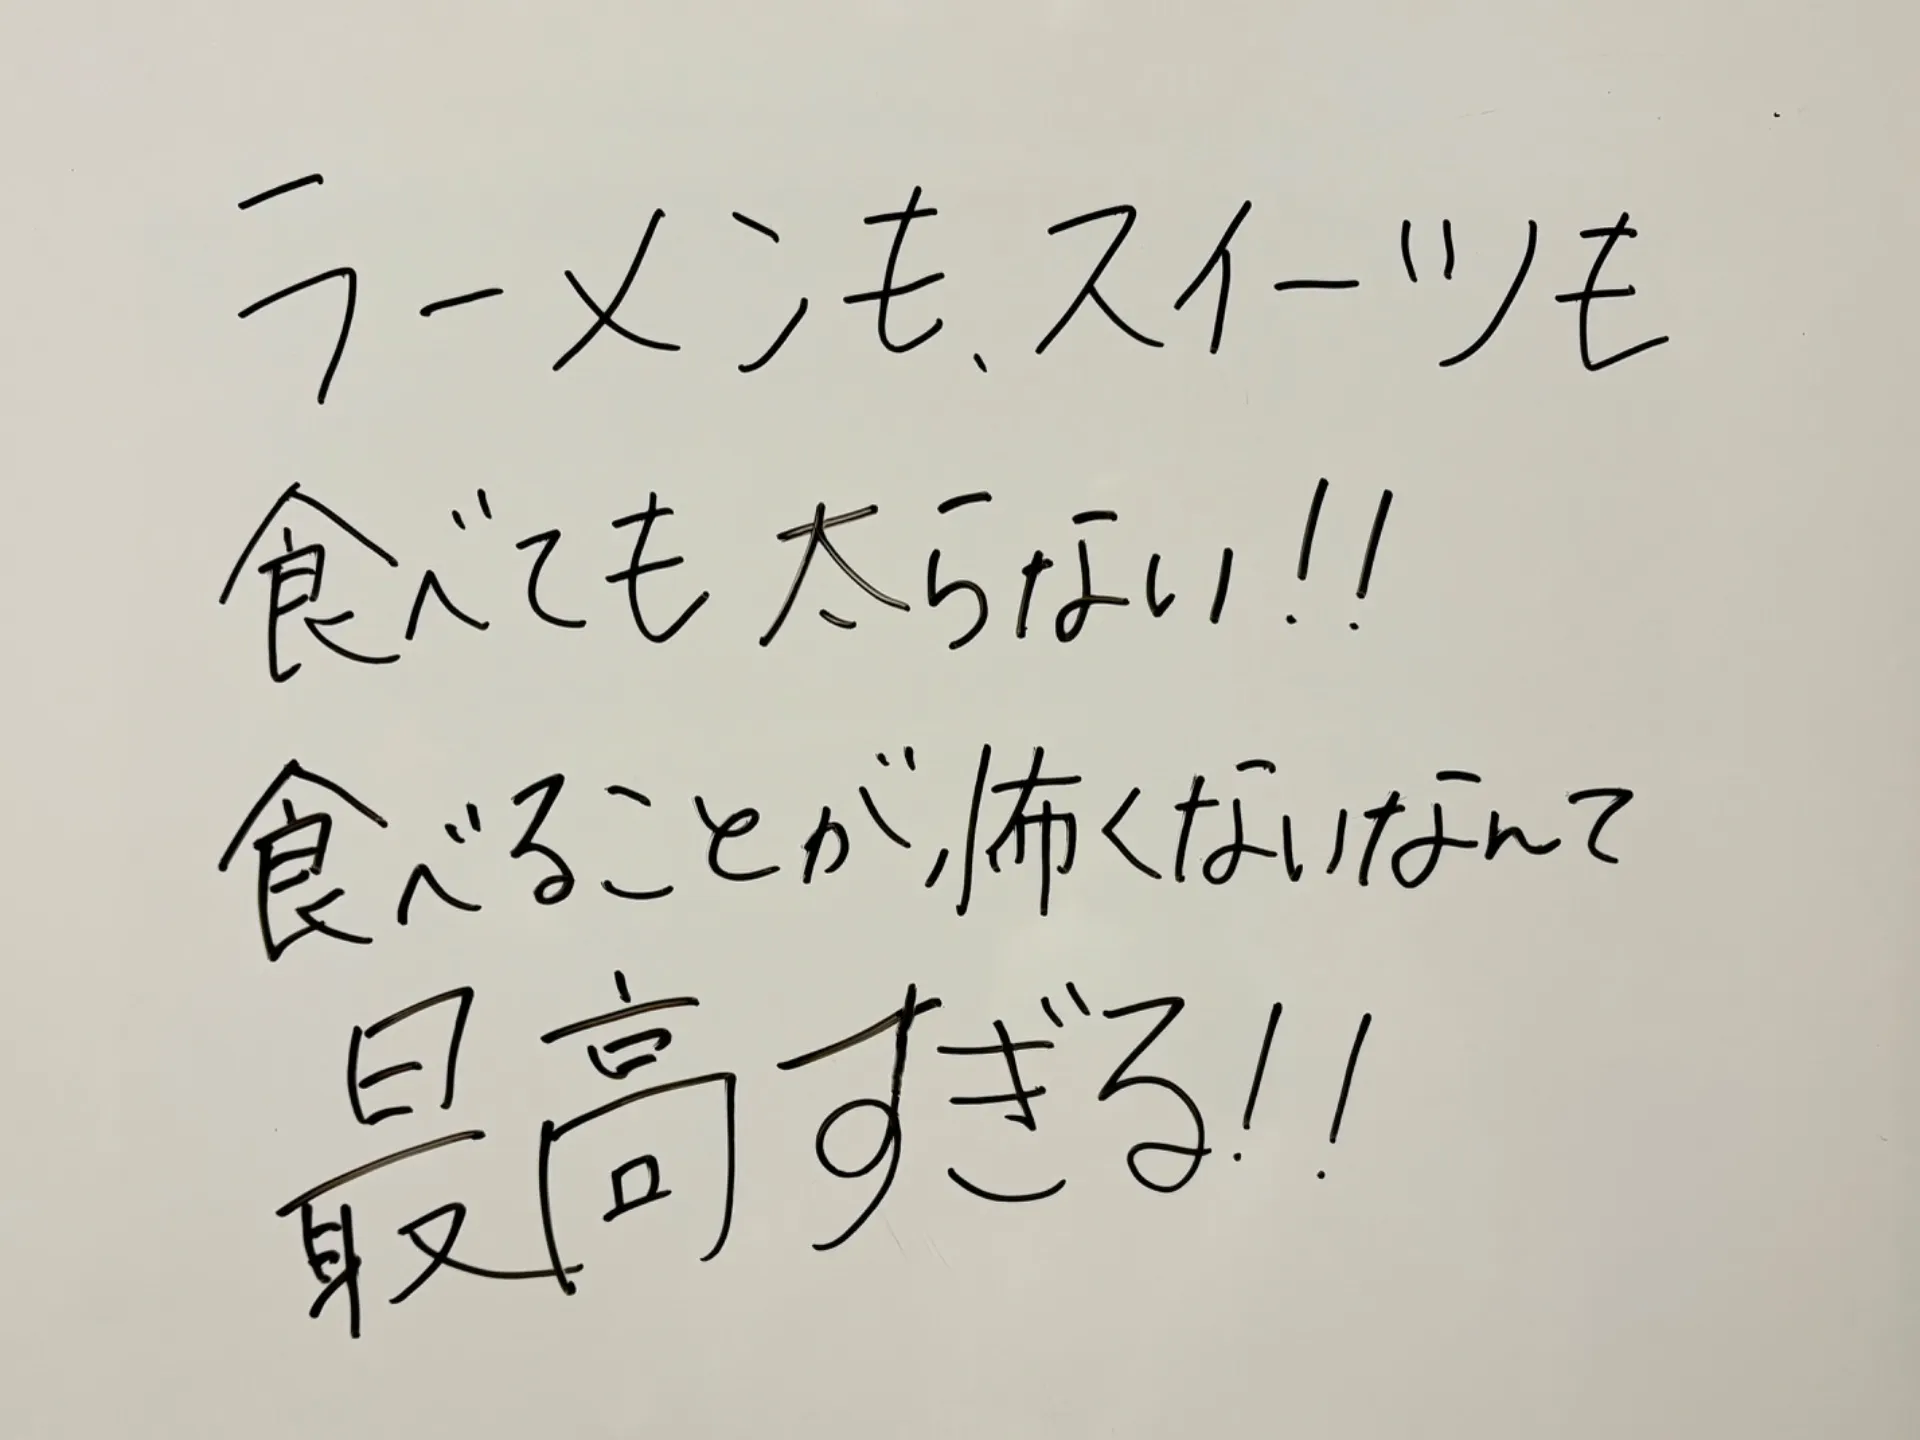 ラーメンも、スイーツも
食べても太らない!!
食べることが、怖くないなんて
最高すぎる!!